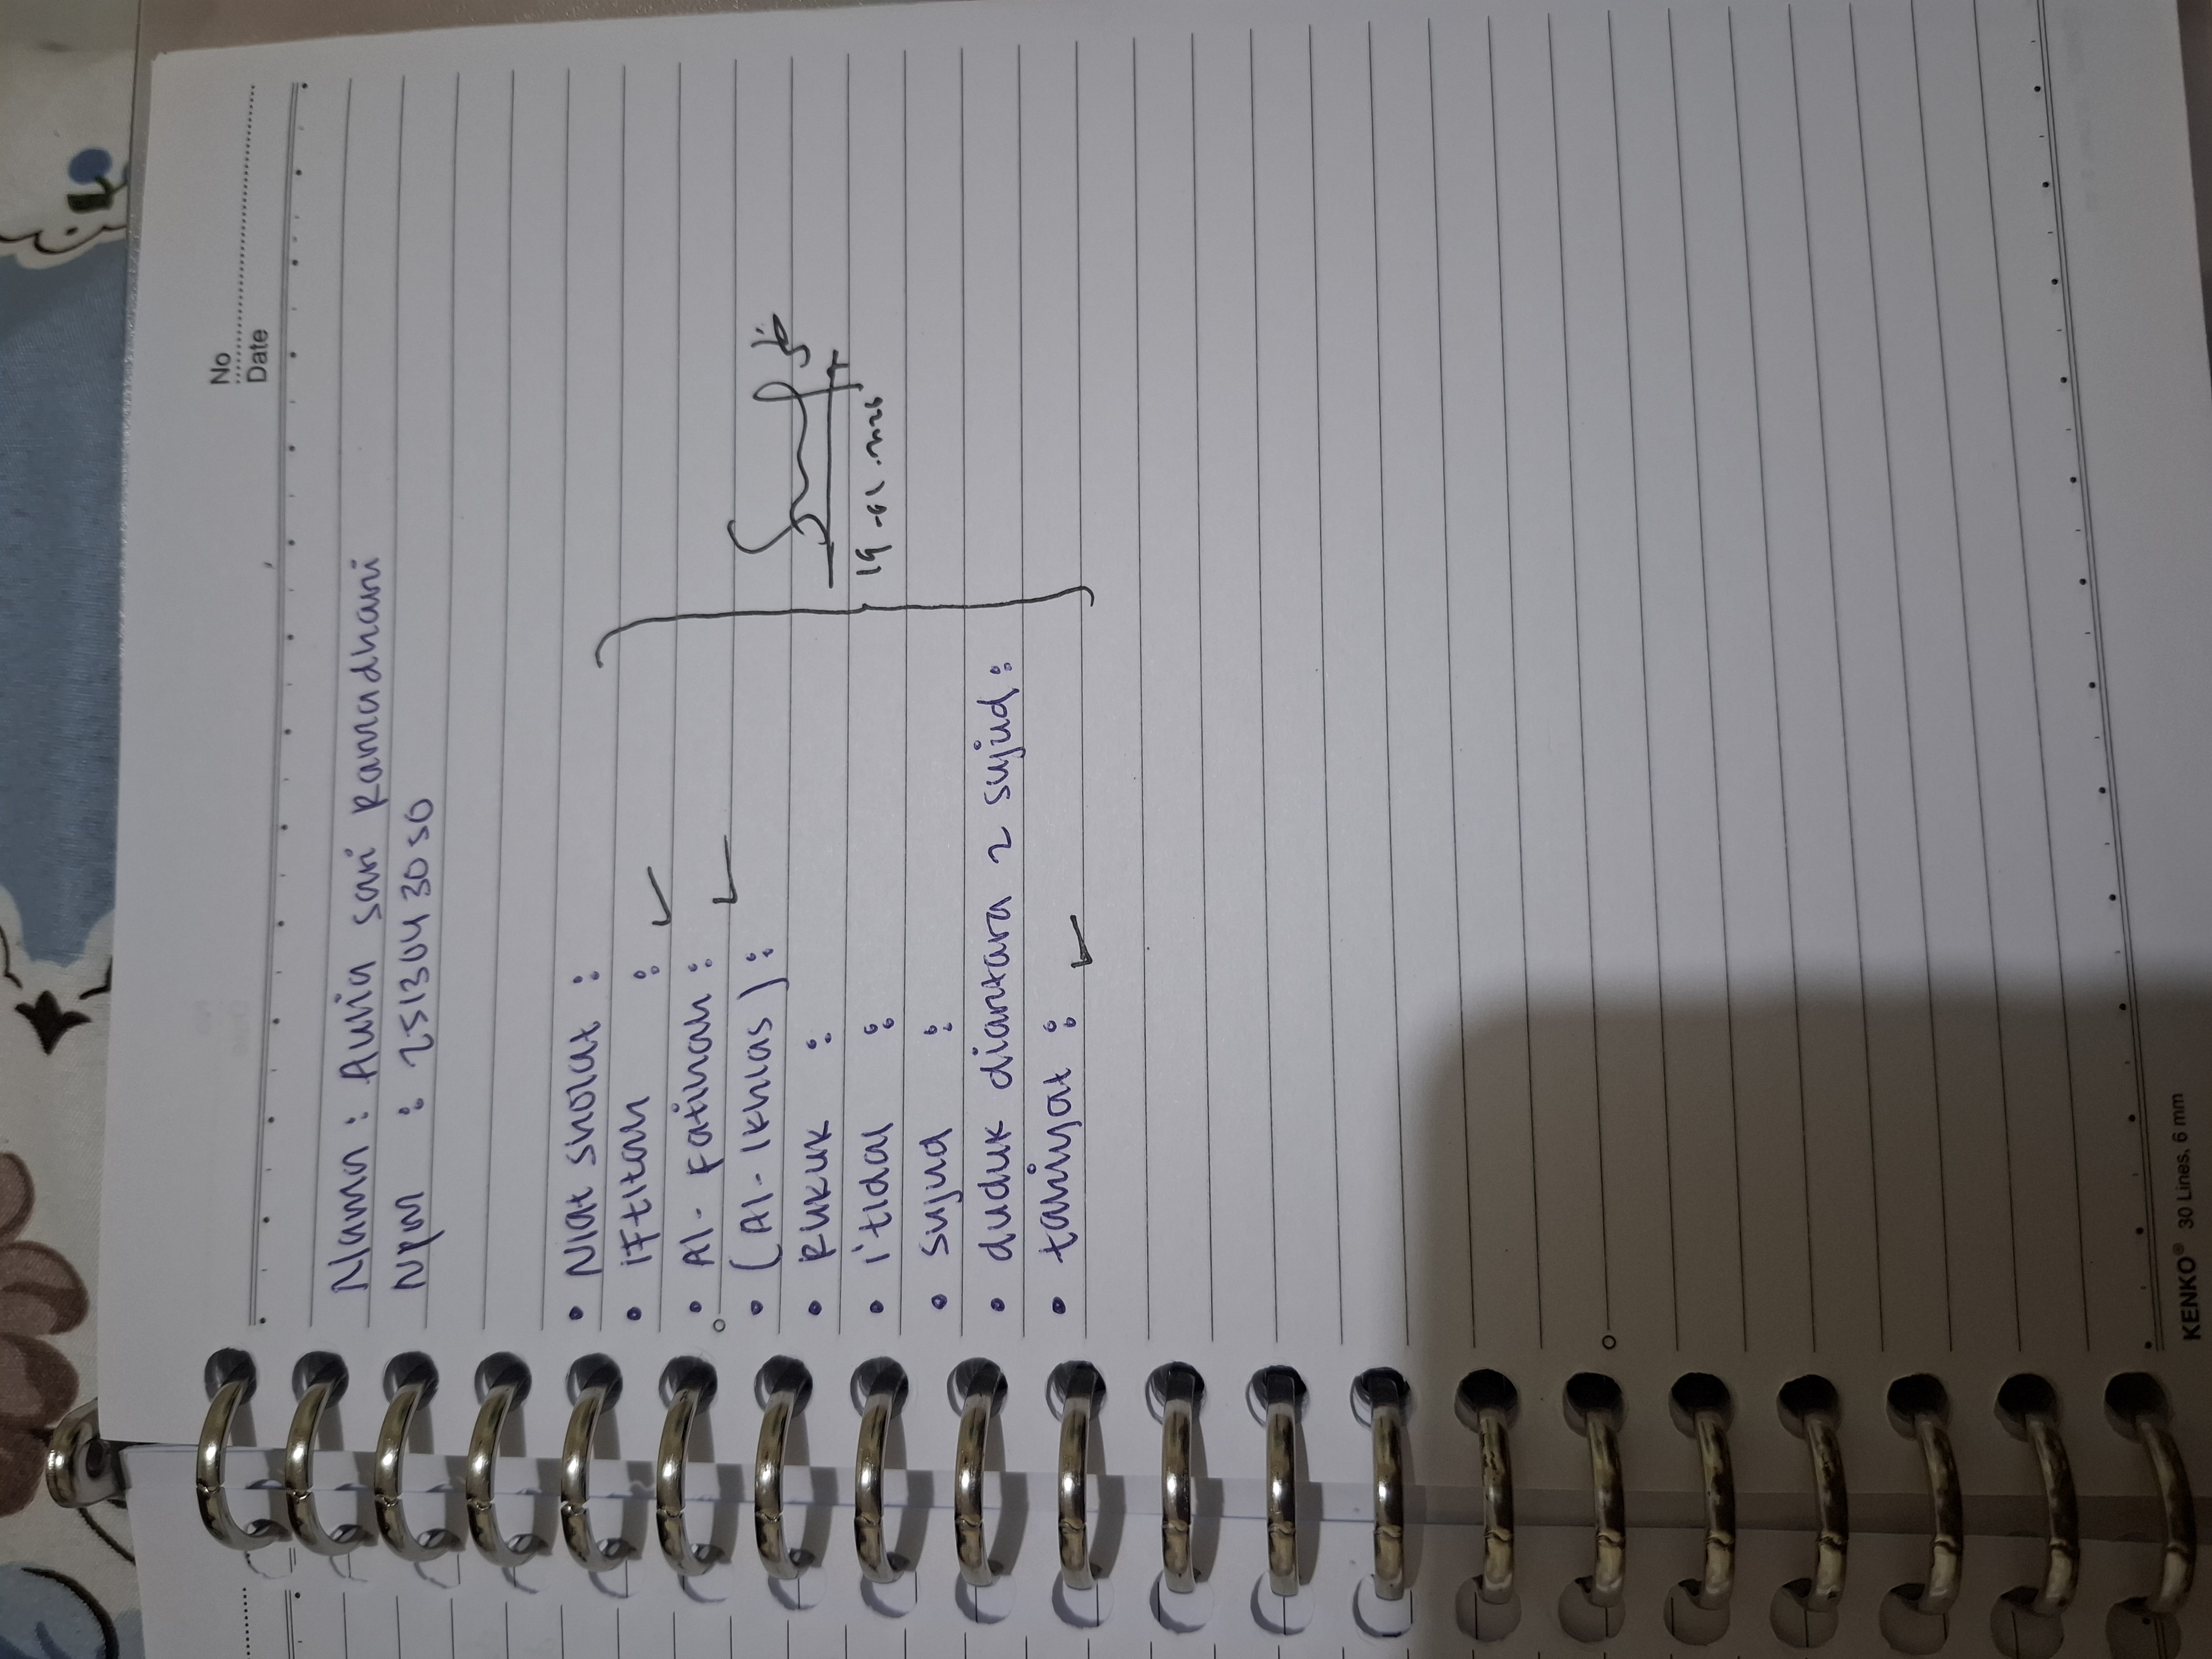 No
Date
Nama : Aulia sari Ramadhani
Npm : 2513043050
• Niat sholat :
• iftitah : ✓
• Al-Fatihah : ✓
• (Al-Ikhlas) :
• Rukuk :
• i'tidal :
• sujud :
• duduk diantara 2 sujud :
• tahiyat : ✓
KENKO® 30 Lines, 6 mm